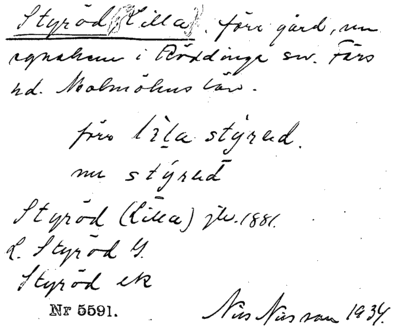 Styröd (Lilla). förr gård, nu
egnahem i Röddinge sn. Färs
hd. Malmöhus län.
förr lìla stýrəd.
nu stýrəd
Styröd (Lilla) jb. 1881.
L. Styröd G.
Styröd ek
Nr 5591.
Nils Nilsson 1934.